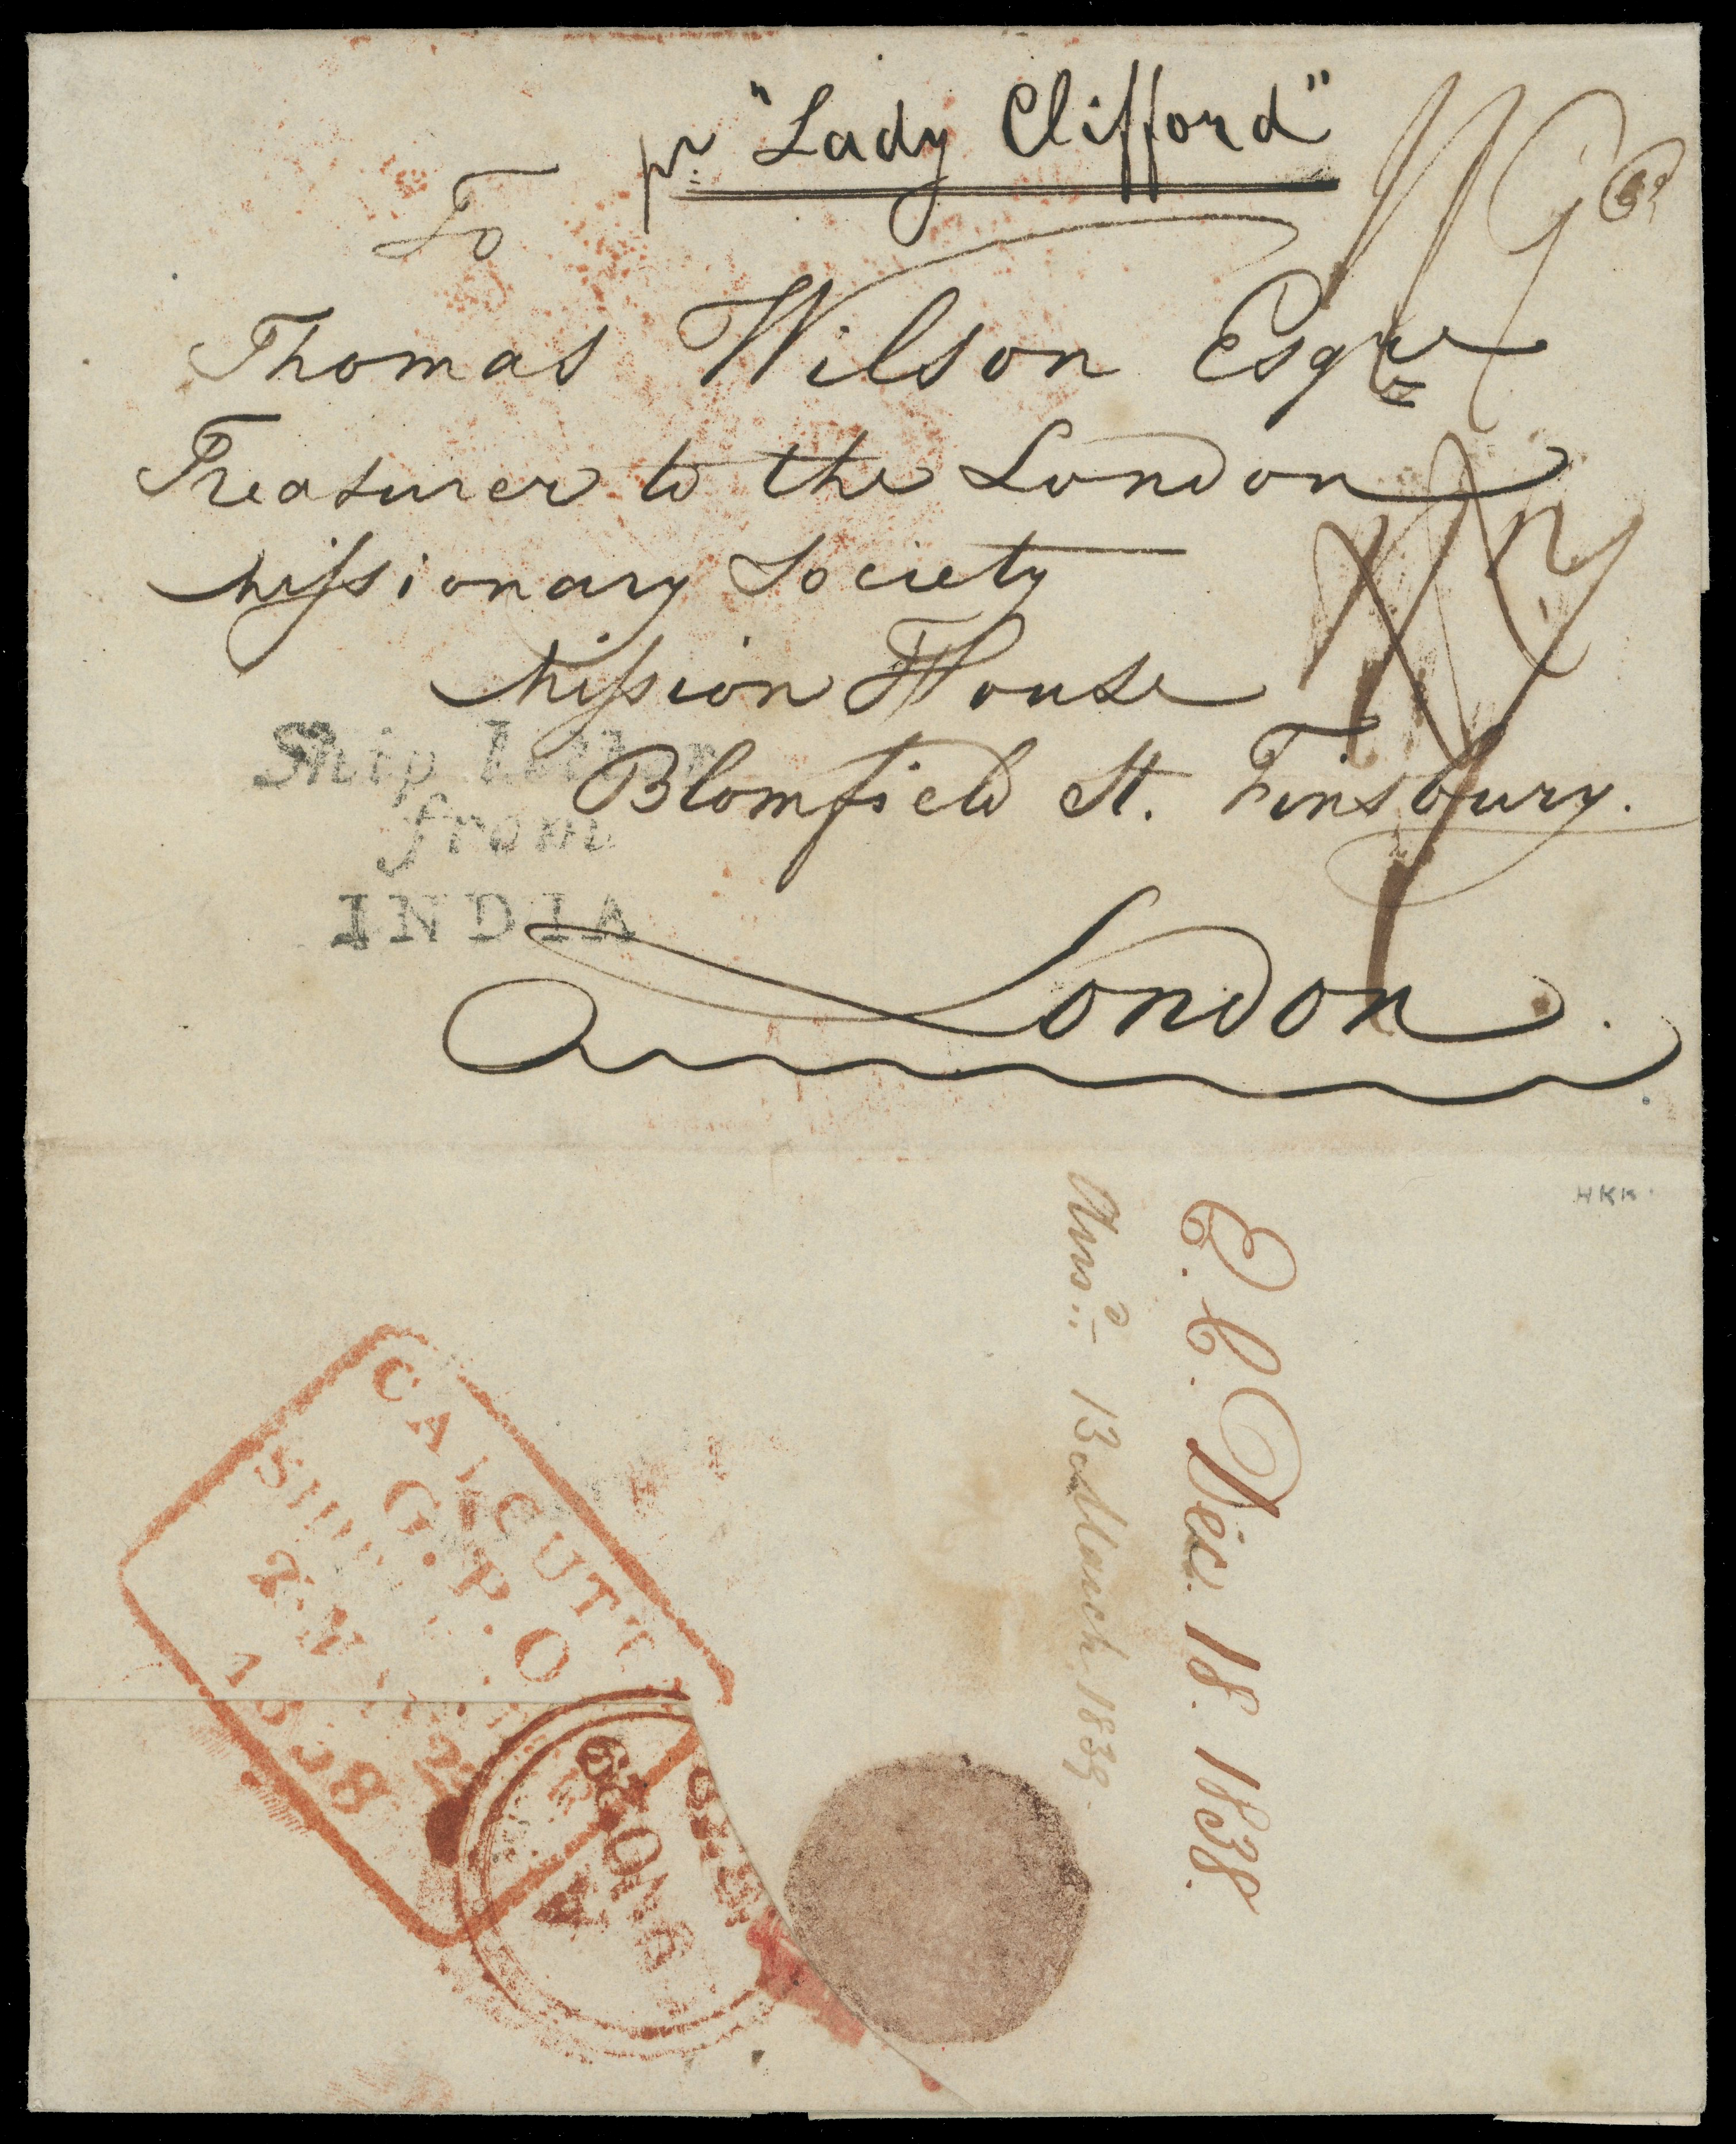 pr. "Lady Clifford"
To
Thomas Wilson Esqre
Treasurer to the London
Missionary Society
Mission House
Blomfield St. Finsbury.
Ship Letter
from
INDIA
London.
HKK.
E. C. Decr. 18. 1838.
Ansd. 13 March 1839.
CALCUTTA
G.P.O
SHIP
1838